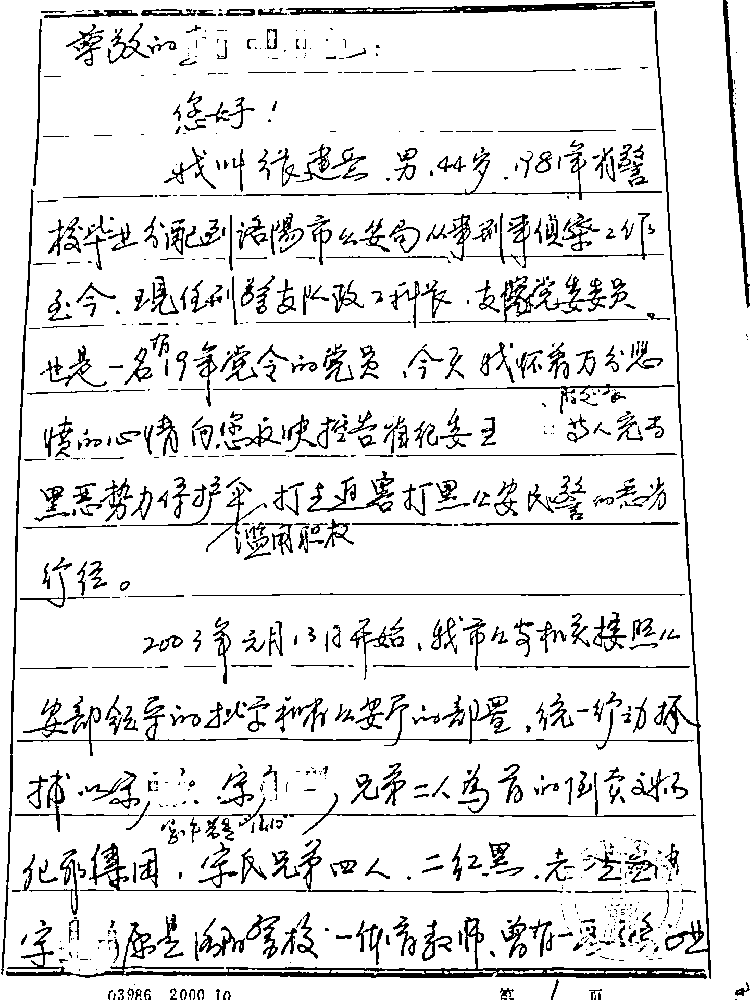 尊敬的
您好！
我叫张建兵，男，44岁，1981年省警
校毕业分配到洛阳市公安局从事刑事侦察工作
至今，现任刑警支队政工科长，支队党委委员。
也是一名有19年党令的党员，今天我怀着万分悲
愤的心情向您反映控告省纪委王 等人充当
黑恶势力保护伞，滥用职权打击迫害打黑公安民警的恶劣
行径。
2003年元月13日开始，我市公安机关按照公
安部领导的批示和省公安厅的部署，统一行动抓
捕以宋 宋 兄弟二人为首的倒卖文物
犯罪集团，宋氏兄弟四人，二红黑，老
宋 原是洛阳警校一体育教师，曾有一
03986 2000.10 第 1 页